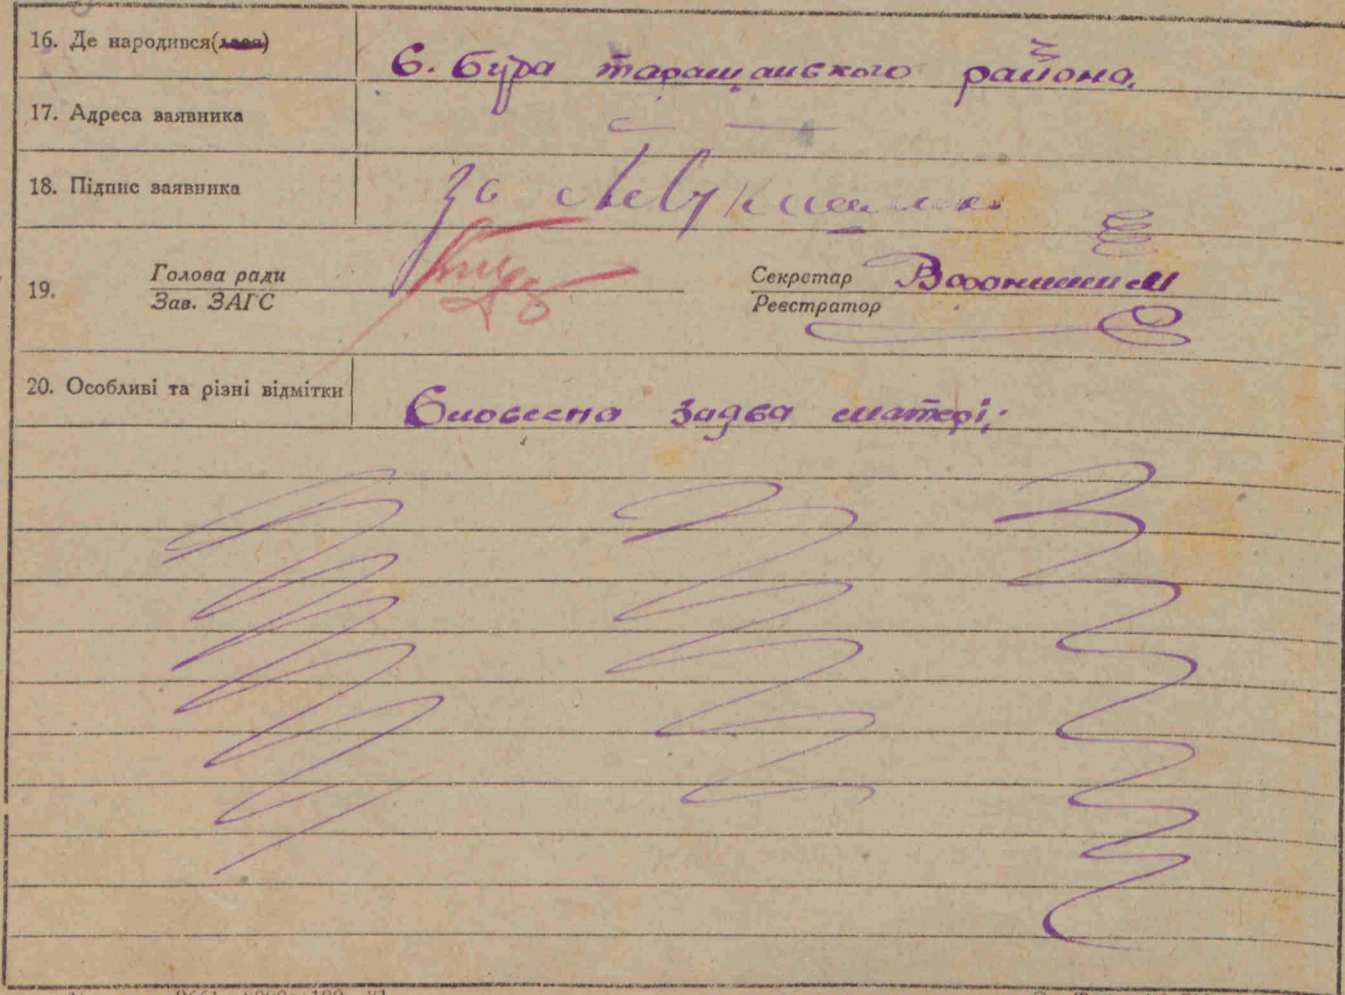 16. Де народився(лася) с. Бура таращанского района.
17. Адреса заявника
18. Підпис заявника за
19. Голова ради Секретар
Зав. ЗАГС Реєстратор
20. Особливі та різні відмітки Словесна задва матері.